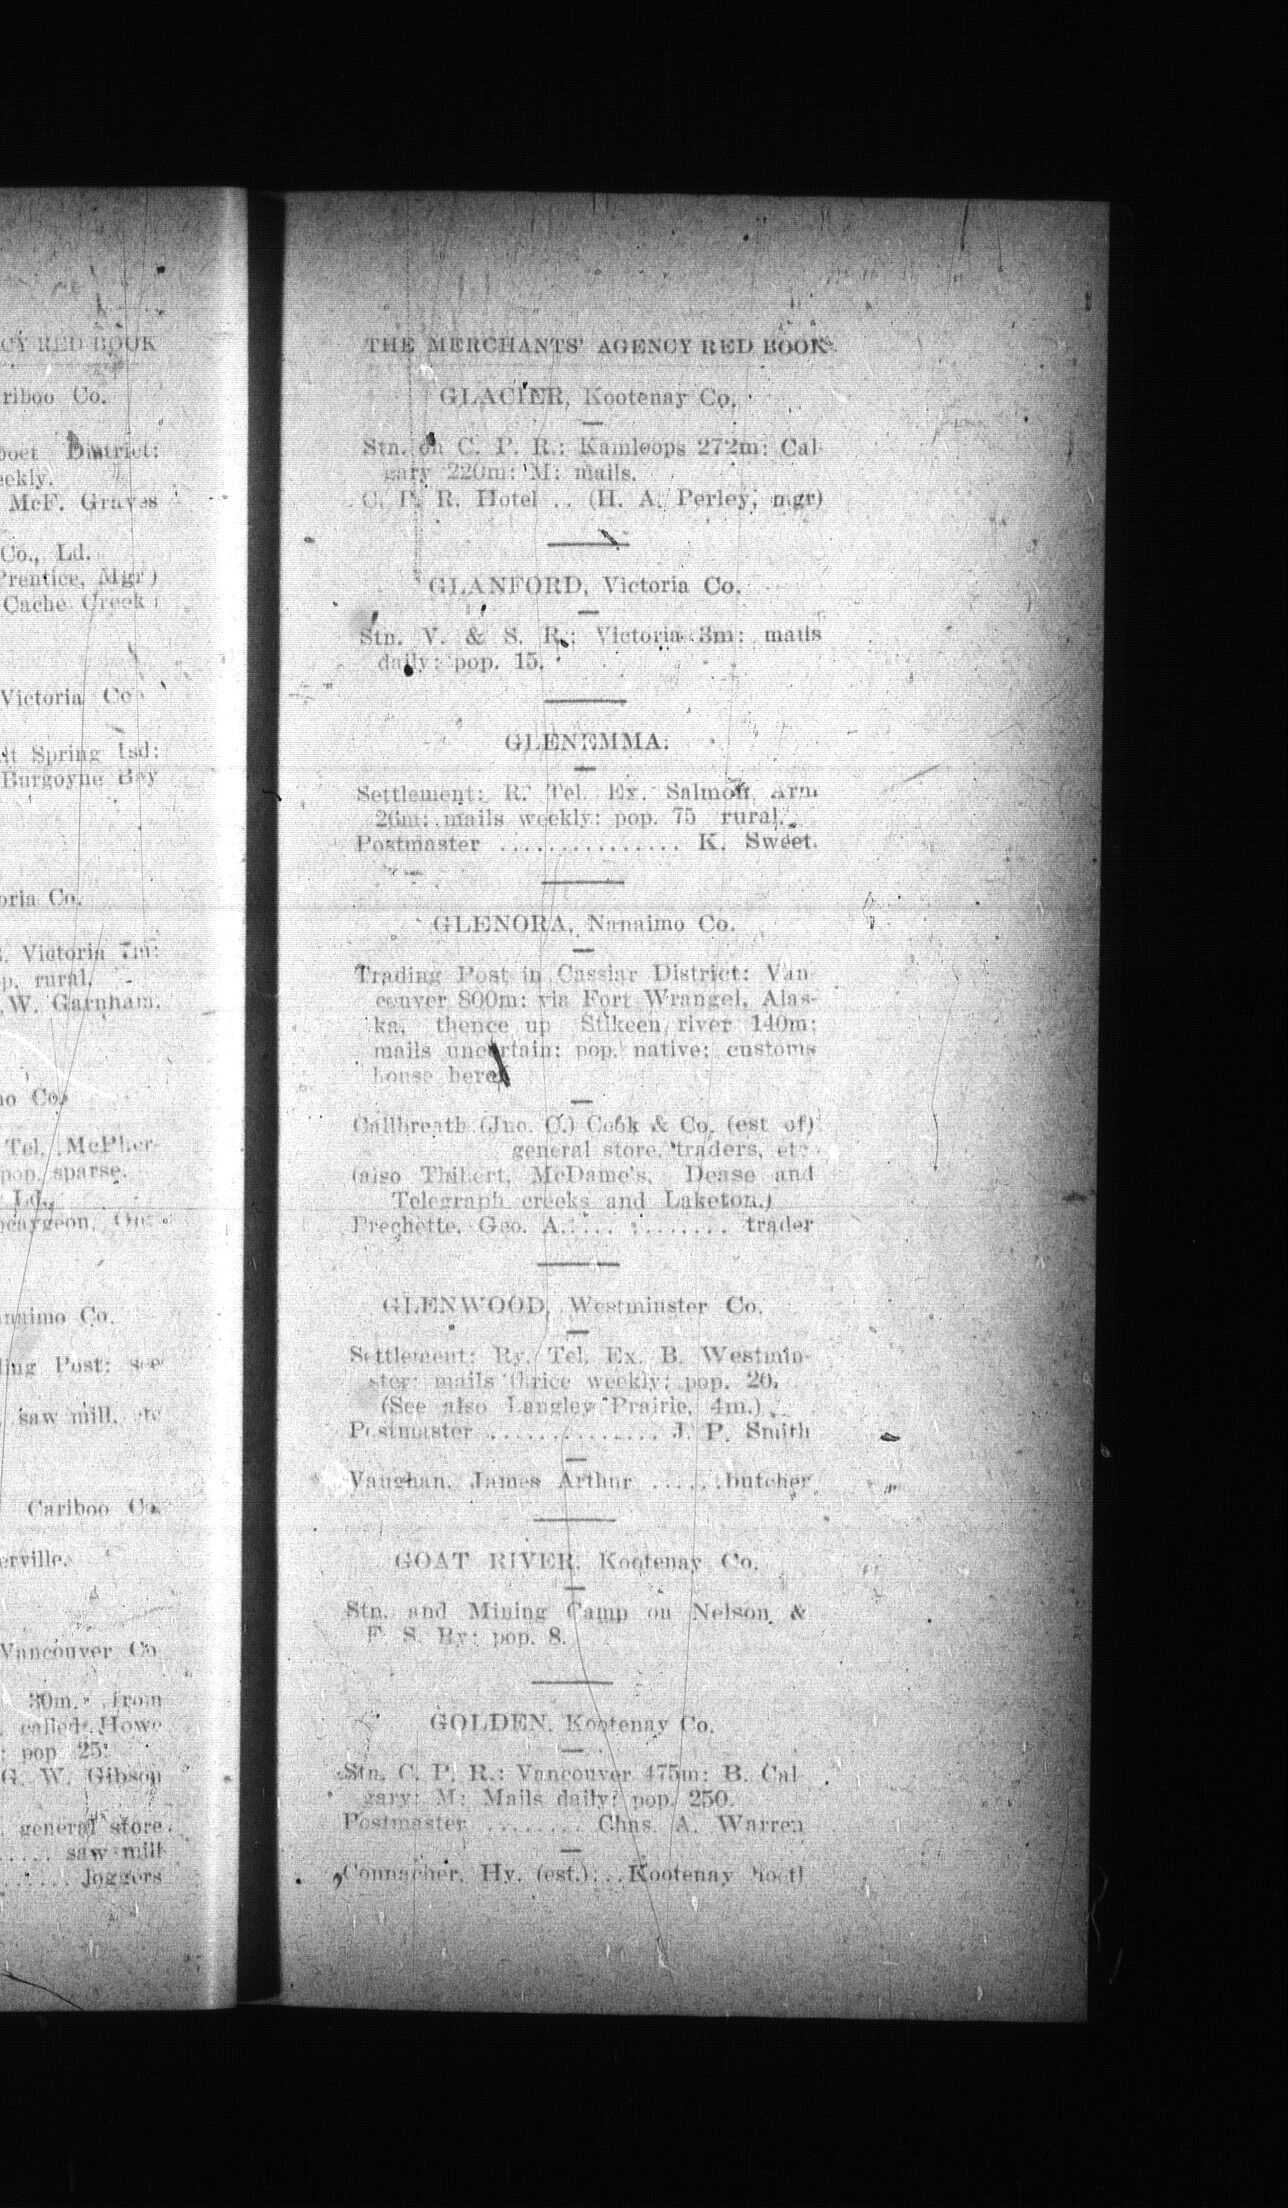 CY RED BOOK
riboo Co.
ooet District:
eekly.
McF. Graves
Co., Ld.
Prentice, Mgr)
Cache Creek)
Victoria Co
lt Spring Isd:
Burgoyne Bay
oria Co.
Victoria 7m:
p. rural.
W. Garnham.
no Co.
Tel. McPher-
pop. sparse.
Ld.,
ocaygeon, Ont
anaimo Co.
ling Post: see
saw mill, etc
Cariboo Co.
erville.
Vancouver Co
30m. from
called Howe
: pop 25:
G. W. Gibson
general store.
..... saw mill
...... loggers
THE MERCHANTS' AGENCY RED BOOK
GLACIER, Kootenay Co.
Stn. on C. P. R.: Kamloops 272m: Cal-
gary 220m: M: mails.
C. P. R. Hotel .. (H. A. Perley, mgr)
GLANFORD, Victoria Co.
Stn. V. & S. R.: Victoria 3m: mails
daily: pop. 15.
GLENEMMA.
Settlement: R. Tel. Ex. Salmon Arm
26m: mails weekly: pop. 75 rural.
Postmaster ............... K. Sweet.
GLENORA, Nanaimo Co.
Trading Post in Cassiar District: Van-
couver 800m: via Fort Wrangel, Alas-
ka, thence up Stikeen river 140m:
mails uncertain: pop. native: customs
house here.
Callbreath (Jno. C.) Cook & Co. (est of)
general store, traders, etc
(also Thibert, McDame's, Dease and
Telegraph creeks and Laketon.)
Prechette, Geo. A. ............ trader
GLENWOOD, Westminster Co.
Settlement: Ry. Tel. Ex. B. Westmin-
ster: mails thrice weekly: pop. 20.
(See also Langley Prairie, 4m.)
Postmaster .............. J. P. Smith
Vaughan, James Arthur ......butcher
GOAT RIVER, Kootenay Co.
Stn. and Mining Camp on Nelson &
F. S. Ry: pop. 8.
GOLDEN, Kootenay Co.
Stn. C. P. R.: Vancouver 475m: B. Cal-
gary: M: Mails daily: pop. 250.
Postmaster ........ Chas. A. Warren
Connacher, Hy. (est.)...Kootenay hotel